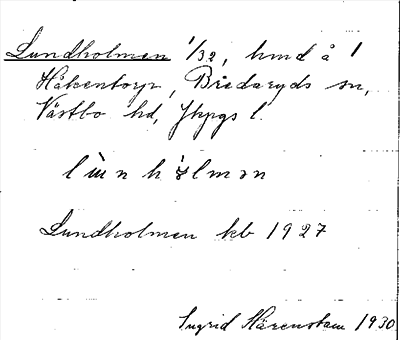 Lundholmen 1/32, hmd å 1
Håkentorp, Bredaryds sn,
Västbo hd, Jkpgs l.
Lundholmen kb 1927
Ingrid Härenstam 1930